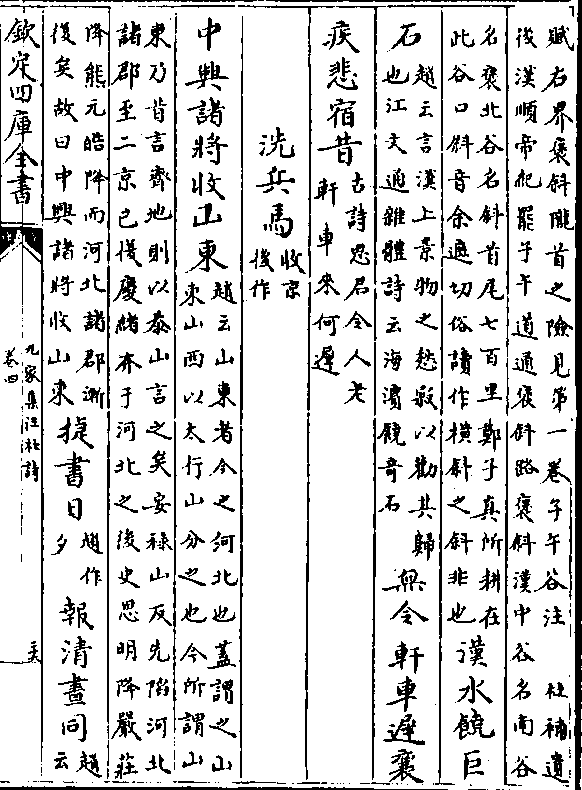 賦右界褒斜隴首之險見第一卷子午谷注　杜補遺
後漢順帝紀罷子午道通褒斜路褒斜漢中谷名南谷
名褒北谷名斜首尾七百里鄭子真所耕在
此谷口斜音余遮切俗讀作橫斜之斜非也
漢水饒巨
石
趙云言漢上景物之愁寂以勸其歸
也江文通雜體詩云海濱饒奇石
無令軒車遲衰
疾悲宿昔
古詩思君令人老
軒車來何遲
洗兵馬
收京
後作
中興諸將收山東
趙云山東者今之河北也蓋謂之山
東山西以太行山分之也今所謂山
東乃昔言齊地則以泰山言之矣安祿山反先陷河北
諸郡至二京已復慶緒奔于河北之後史思明降嚴莊
降熊元皓降而河北諸郡漸
復矣故曰中興諸將收山東
捷書日
趙作
夕
報清晝同
趙
云
欽定四庫全書
九家集注杜詩
卷四